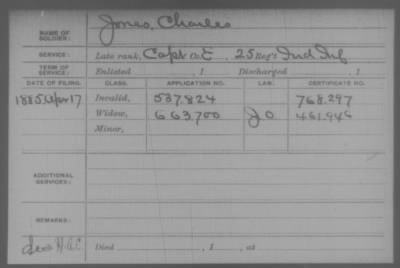 NAME OF SOLDIER: Jones, Charles
SERVICE: Late rank, Capt Co. E, 25 Reg't Ind Inf
TERM OF SERVICE: Enlisted , 1 Discharged , 1
DATE OF FILING. CLASS. APPLICATION NO. LAW. CERTIFICATE NO.
1885 Apr 17 Invalid, 537.824 768.297
Widow, 663.700 J O 461.946
Minor,
ADDITIONAL SERVICES:
REMARKS:
Died , 1 , at